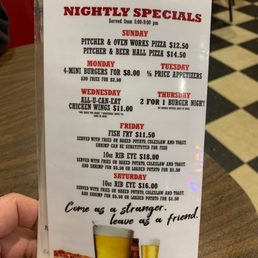 NIGHTLY SPECIALS
Served from 5:00-9:00 pm
SUNDAY
PITCHER & OVEN WORKS PIZZA $12.50
PITCHER & BEER HALL PIZZA $14.50
MONDAY TUESDAY
4-MINI BURGERS FOR $8.00 ½ PRICE APPETIZERS
ADD FRIES FOR $2.50
WEDNESDAY THURSDAY
ALL-U-CAN-EAT 2 FOR 1 BURGER NIGHT
CHICKEN WINGS $11.00
FRIDAY
FISH FRY $11.50
SERVED WITH FRIES OR BAKED POTATO, COLESLAW AND TOAST
SHRIMP CAN BE SUBSTITUTED FOR FISH
10oz RIB EYE $18.00
SERVED WITH FRIES OR BAKED POTATO, COLESLAW AND TOAST
ADD SHRIMP FOR OR LOADED POTATO FOR
SATURDAY
10oz RIB EYE $16.00
SERVED WITH FRIES OR BAKED POTATO, COLESLAW AND TOAST
ADD SHRIMP FOR OR LOADED POTATO FOR
Come as a stranger,
leave as a friend.